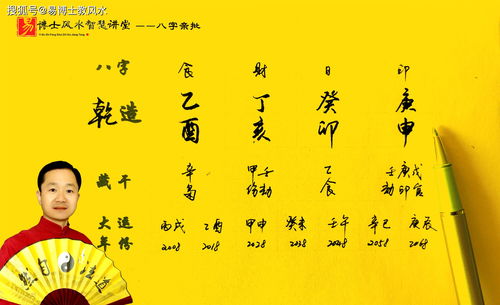 搜狐号@易博士救风水
易博士风水智慧讲堂 ——八字亲批
八字 食 财 日 印
乾造 乙 丁 癸 庚
酉 亥 卯 申
藏干 辛 甲壬 乙 壬庚戊
枭 伤劫 食 劫印官
大运 丙戌 乙酉 甲申 癸未 壬午 辛巳 庚辰
年份 2008 2018 2028 2038 2048 2058 2068
然自法道